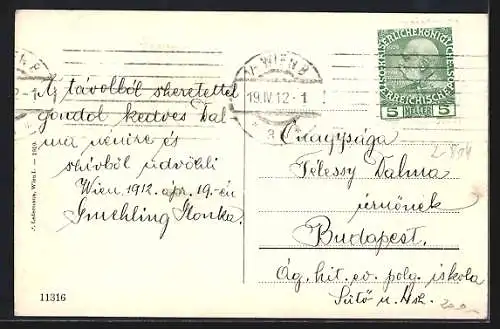 A távolból szeretettel
gondol kedves Dal-
ma nénire és
szivből üdvözli
Wien, 1912. apr. 19-én
Gmehling Ilonka.
1/1 WIEN 8
19.IV.12-1
KAISERLICHE KÖNIGLICHE
ÖSTERREICHISCHE
5 HELLER 5
Őnagysága
Télessy Dalma
úrnőnek
Budapest.
Ág. hit. ev. polg. iskola
Sütő u.
J. Ledermann, Wien I. – 1910.
11316